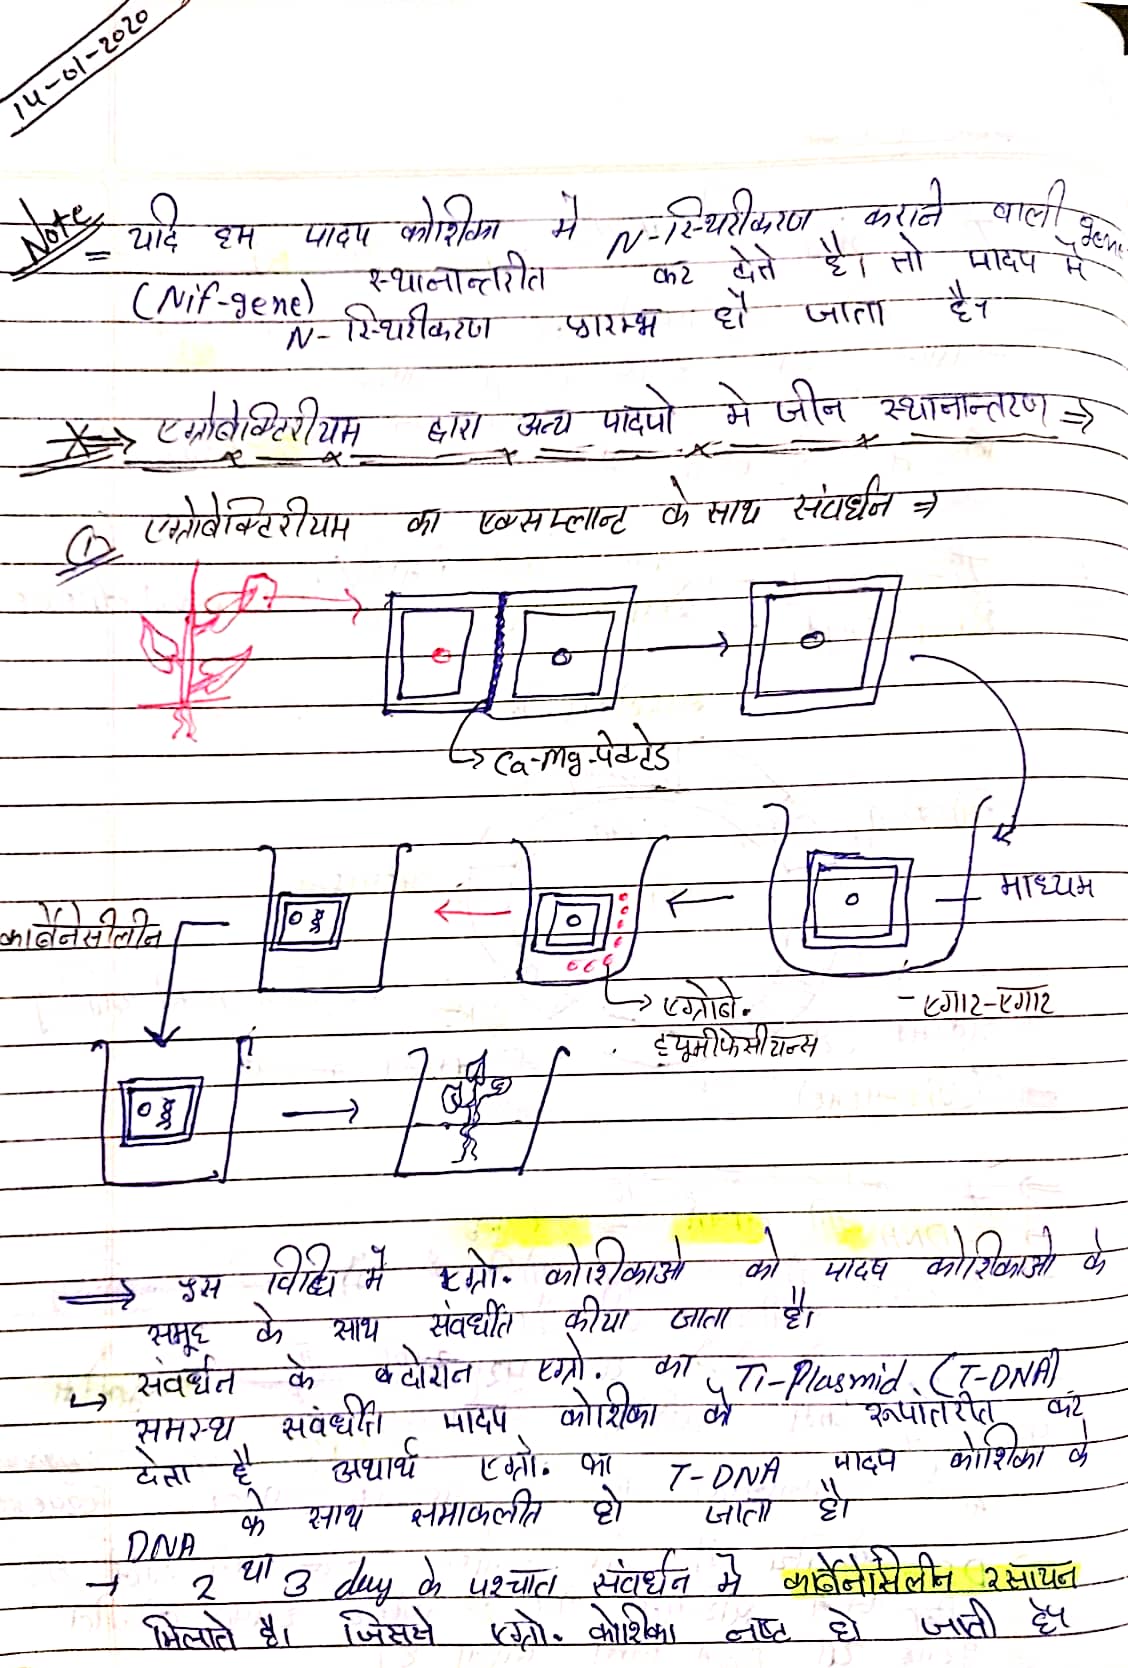 14-01-2020
Note = यदि हम पादप कोशिका मे N-स्थिरीकरण कराने वाली gene
(Nif-gene) स्थानान्तरीत कर देते है। तो पादप मे
N-स्थिरीकरण प्रारम्भ हो जाता है।
* ⇒ एग्रोबेक्टिरीयम द्वारा अन्य पादपो मे जीन स्थानान्तरण ⇒
① एग्रोबेक्टिरीयम का एक्सप्लान्ट के साथ संवर्धन ⇒
Ca-Mg-पेक्टेड
माध्यम
कार्बेनेसीलीन
एग्रोबे.
- एगार-एगार
ट्यूमीफेसीयन्स
→ इस विधि में एग्रो. कोशिकाओ को पादप कोशिकाओ के
समूह के साथ संवर्धीत कीया जाता है।
↳ संवर्धन के दोरान एग्रो. का Ti-Plasmid (T-DNA)
समस्थ संवर्धीत पादप कोशिका को रूपांतरीत कर
देता है अथार्थ एग्रो. का T-DNA पादप कोशिका के
DNA के साथ समाकलीत हो जाता है।
→ 2 या 3 day के पश्चात संवर्धन मे कार्बेनेसिलीन रसायन
मिलाते है। जिससे एग्रो. कोशिका नष्ट हो जाती है।